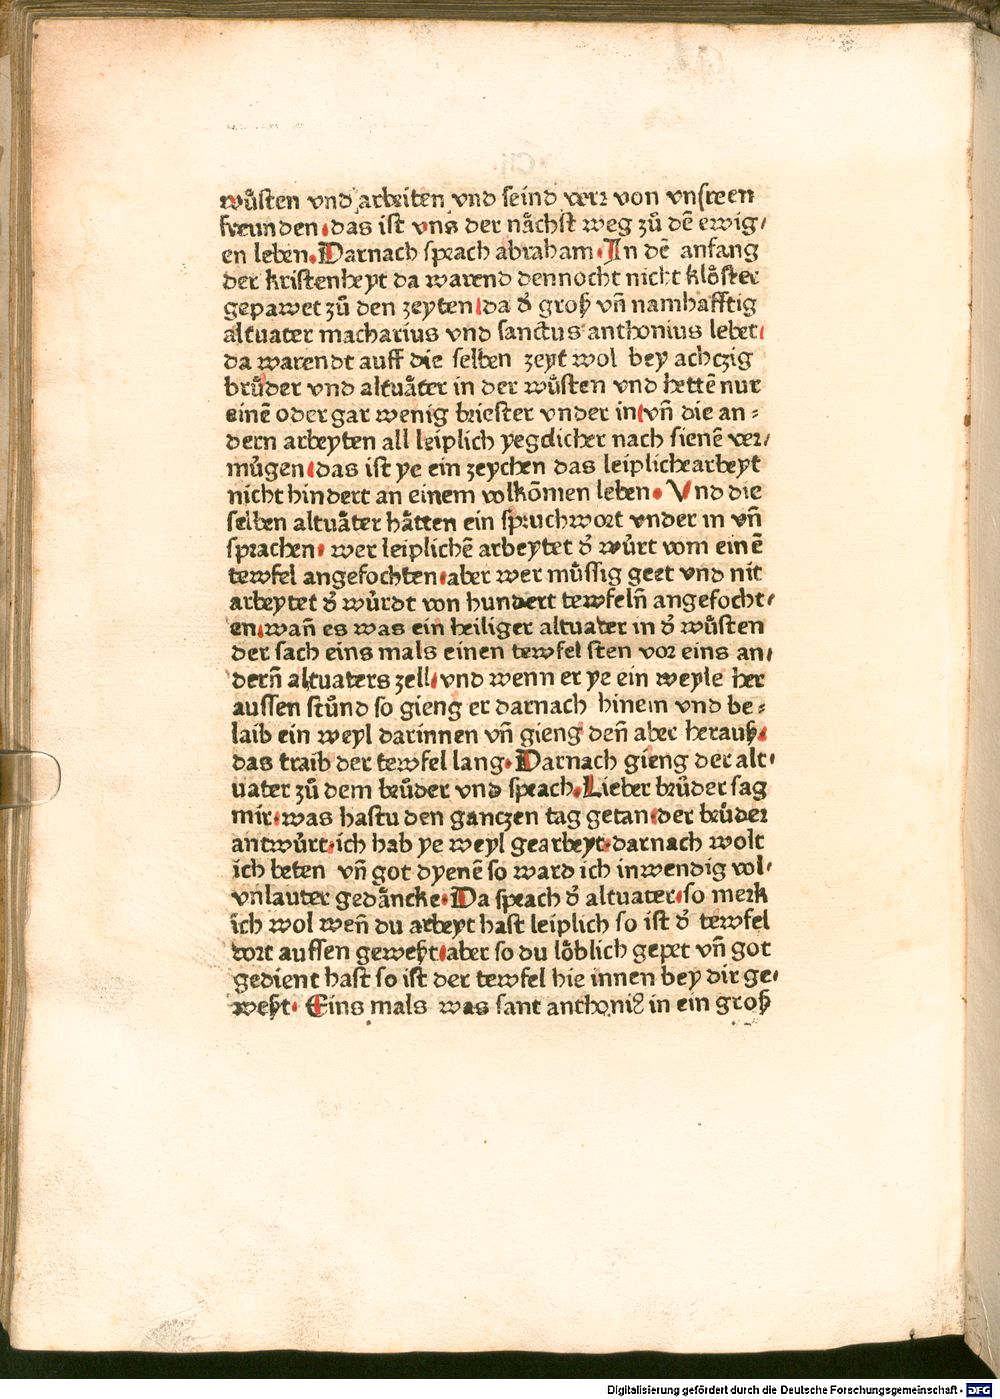 wuͤſten vnd arbeiten vnd ſeind verꝛ von vnſreen
freunden·das iſt vns der naͤchſt weg zuͤ dē ewig⸗
en leben.Darnach ſprach abraham·In dē anfang
der kriſtenheyt da warend dennocht nicht kloͤſter
gepawet zuͤ den zeyten/da ð groſʒ vñ namhafftig
altuater macharius vnd ſanctus anthonius lebet/
da warendt auff die ſelben zeyt wol bey achczig
bruͤder vnd altuaͤter in der wuͤſten vnd hettē nur
einē oder gar wenig brieſter vnder in/vñ die an⸗
dern arbeyten all leiplich yegclicher nach ſienē ver⸗
muͤgen/das iſt ye ein zeychen das leiplichearbeyt
nicht hindert an einem volkōmen leben· Vnd die
ſelben altuaͤter haͤtten ein ſpruchwoꝛt vnder in vñ
ſpꝛachen· wer leiplichē arbeytet ð wuͤrt vom einē
tewfel angefochten·aber wer muͤſſig geet vnd nit
arbeytet ð wuͤrdt von hundert tewfelñ angefocht⸗
en·wañ es was ein heiliger altuater in ð wuͤſten
der ſach eins mals einen tewfel ſten voꝛ eins an⸗
derñ altuaters zell/vnd wenn er ye ein weyle her
auſſen ſtuͤnd ſo gieng er darnach hinein vnd be⸗
laib ein weyl darinnen vñ gieng deñ aber herauſʒ·
das traib der tewfel lang·Darnach gieng der alt⸗
uater zuͤ dem bruͤder vnd ſpꝛach·Lieber bruͤder ſag
mir·was haſtu den ganczen tag getan·der bruͤdeꝛ
antwuͤrt·ich hab ye weyl gearbeyt·darnach wolt
ich beten vñ got dyenē ſo ward ich inwendig vol⸗
vnlauter gedaͤncke·Da ſpꝛach ð altuater·ſo merk
ich wol weñ du arbeyt haſt leiplich ſo iſt ð tewfel
doꝛt auſſen geweſʒt/aber ſo du loͤblich gepet vñ got
gedient haſt ſo iſt der tewfel hie innen bey dir ge⸗
weſʒt· Eins mals was ſant anthoniꝰ in ein groſʒ
Digitalisierung gefördert durch die Deutsche Forschungsgemeinschaft - DFG